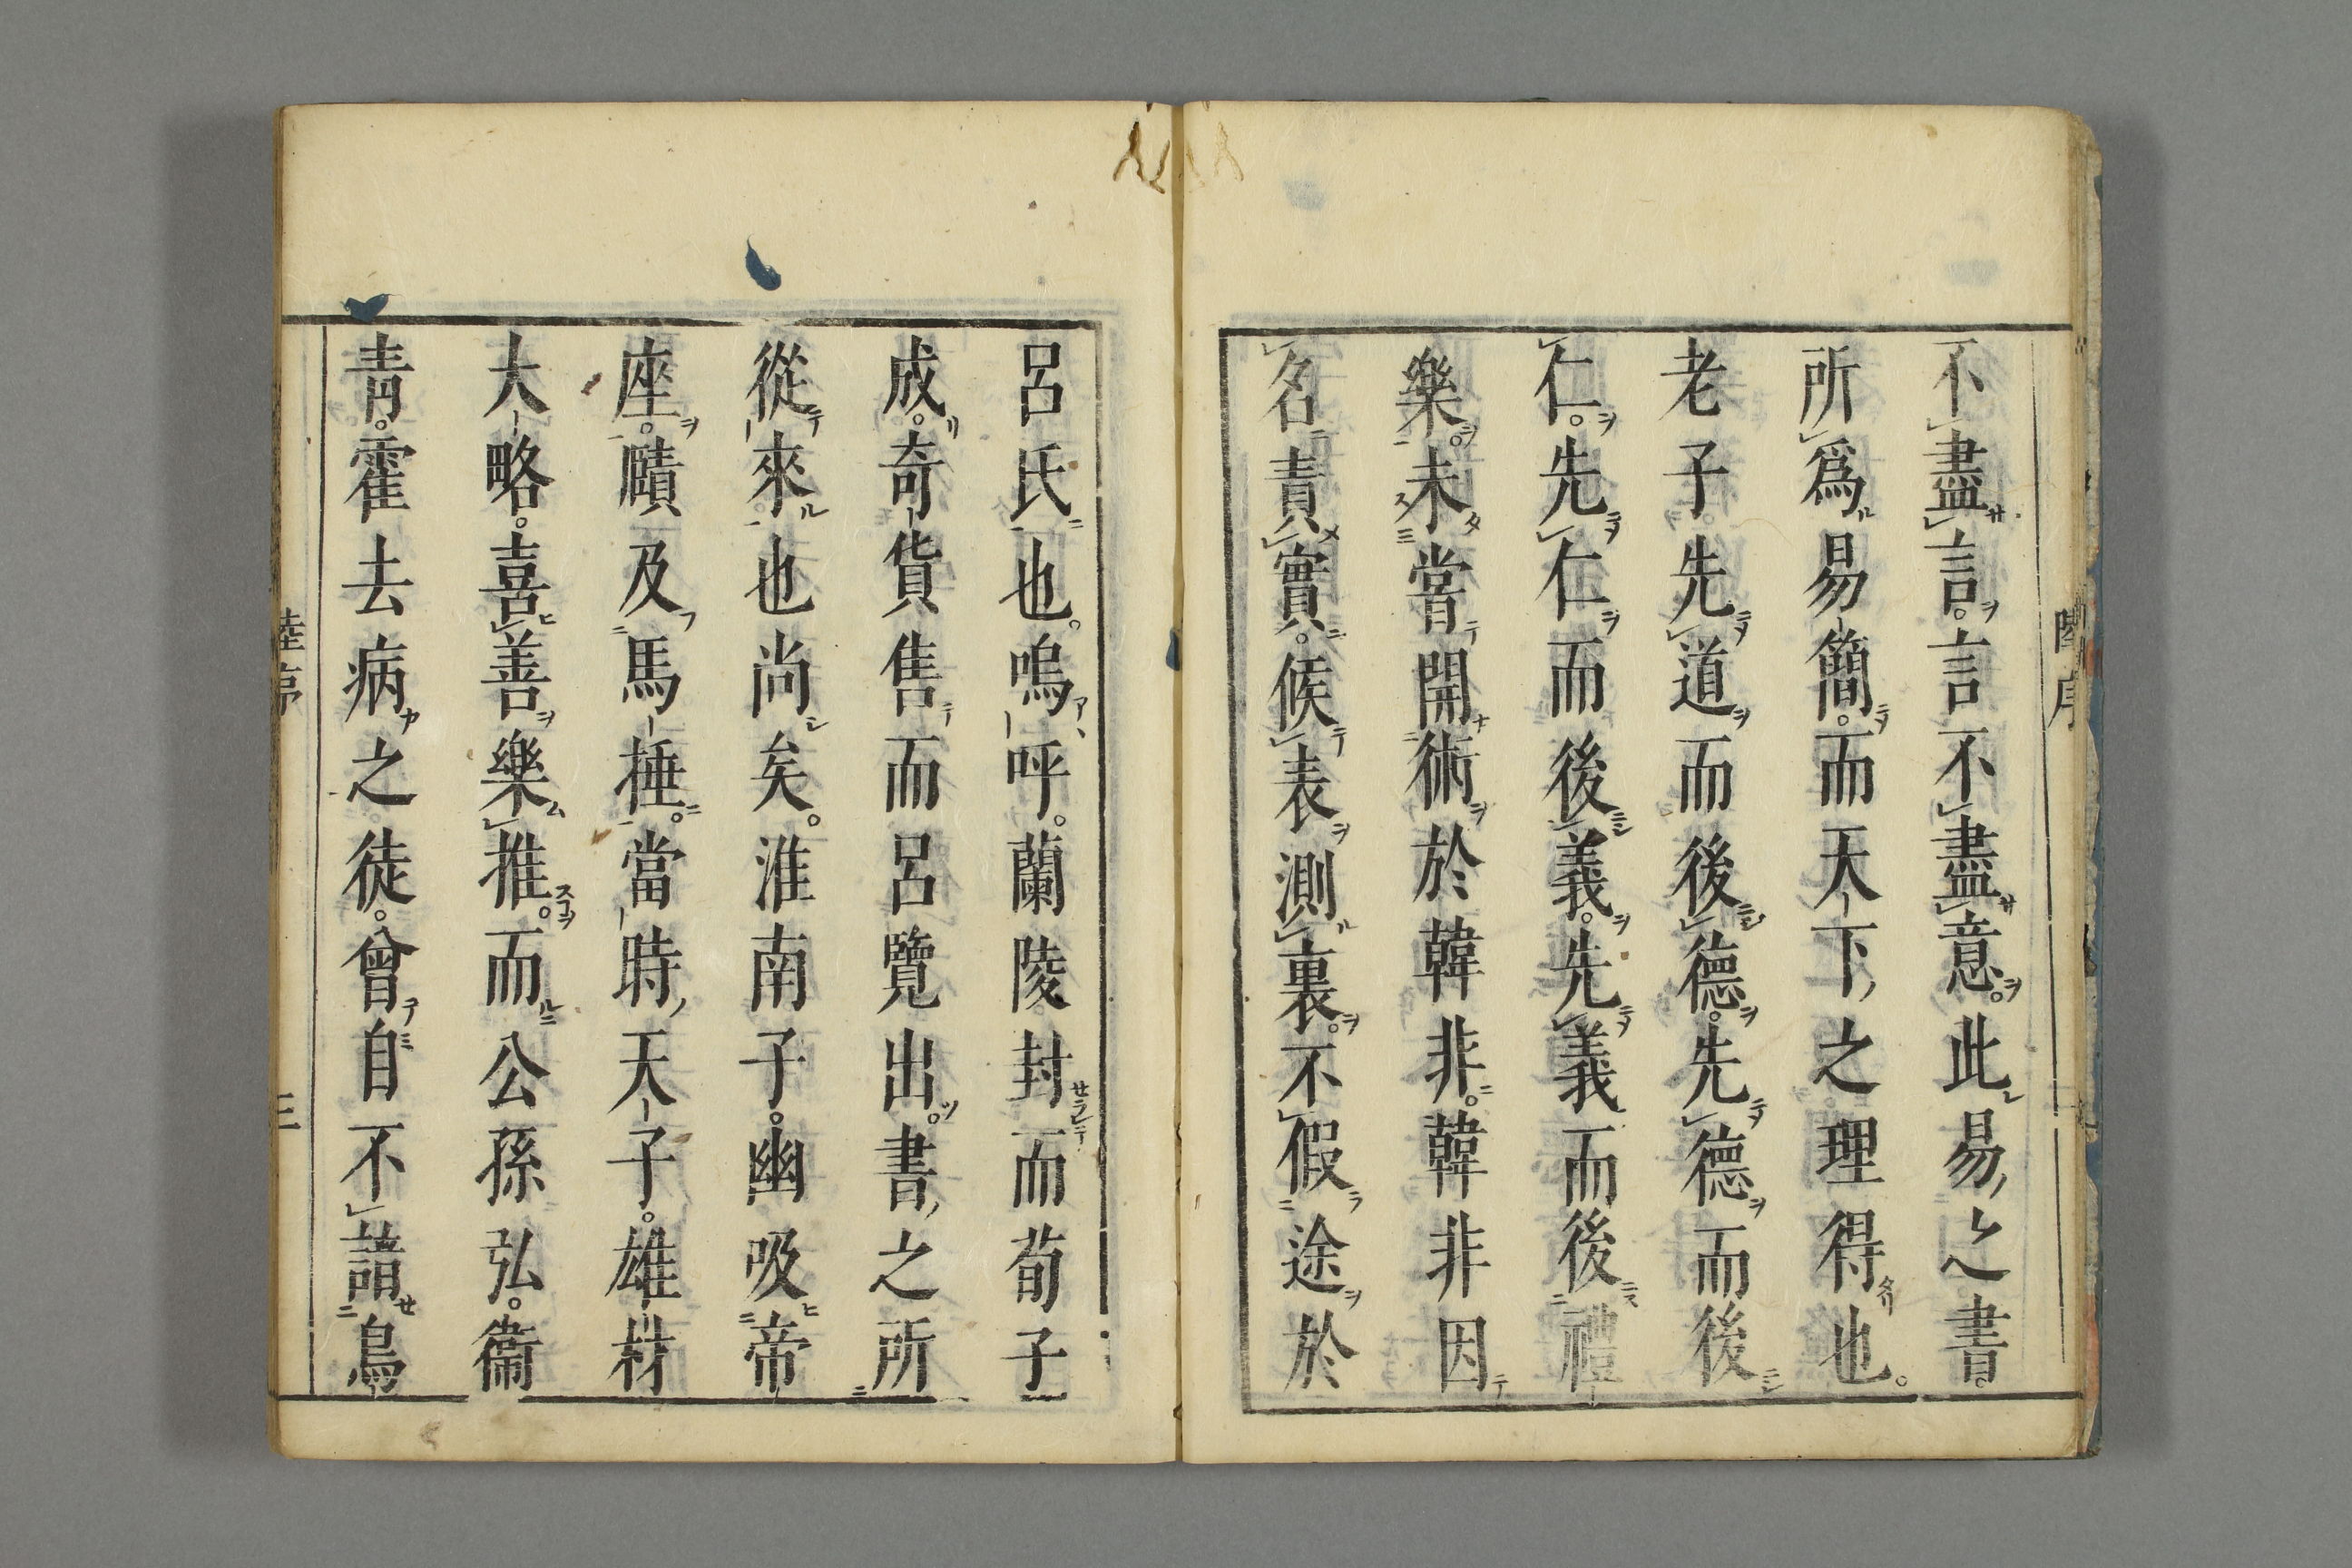 陸序
不盡言。言不盡意。此易之書。
所爲易簡。而天下之理得也。
老子先道而後德。先德而後
仁。先仁而後義。先義而後禮
樂。未嘗開術於韓非。韓非因
名責實。候表測裏。不假途於
呂氏也。嗚呼。蘭陵封而荀子
成。奇貨售而呂覽出。書之所
從來也尚矣。淮南子。幽吸帝
座。賾及馬捶。當時天子。雄材
大略。喜善樂推。而公孫弘。衞
青。霍去病之徒。曾自不諳鳥
陸序
三